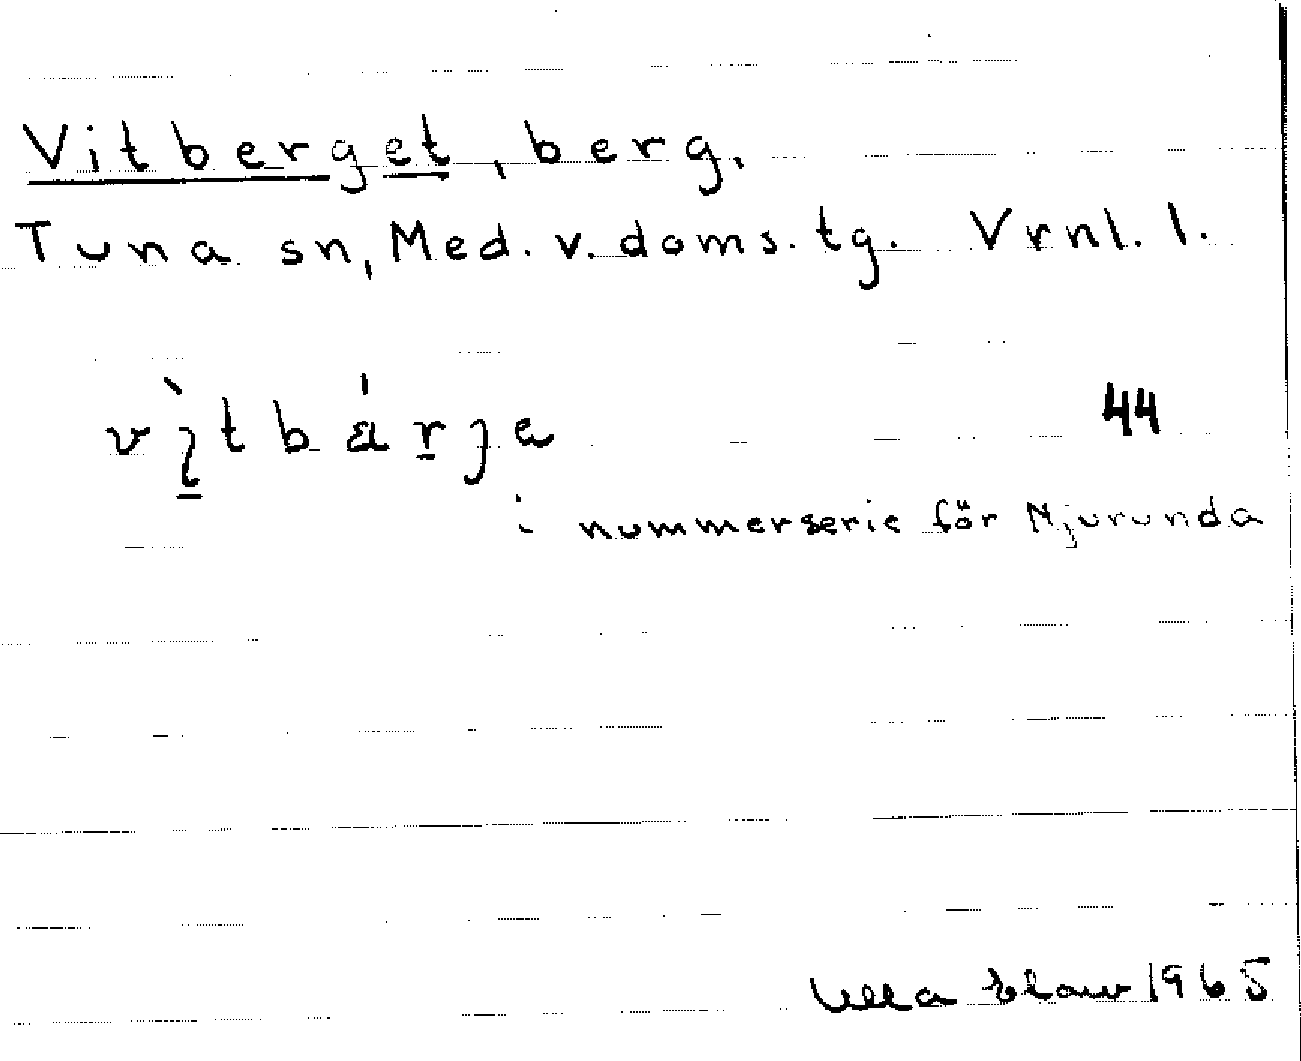 Vitberget, berg.
Tuna sn, Med. v. doms. tg. Vrnl. l.
44
i nummerserie för Njurunda
Ulla 1965